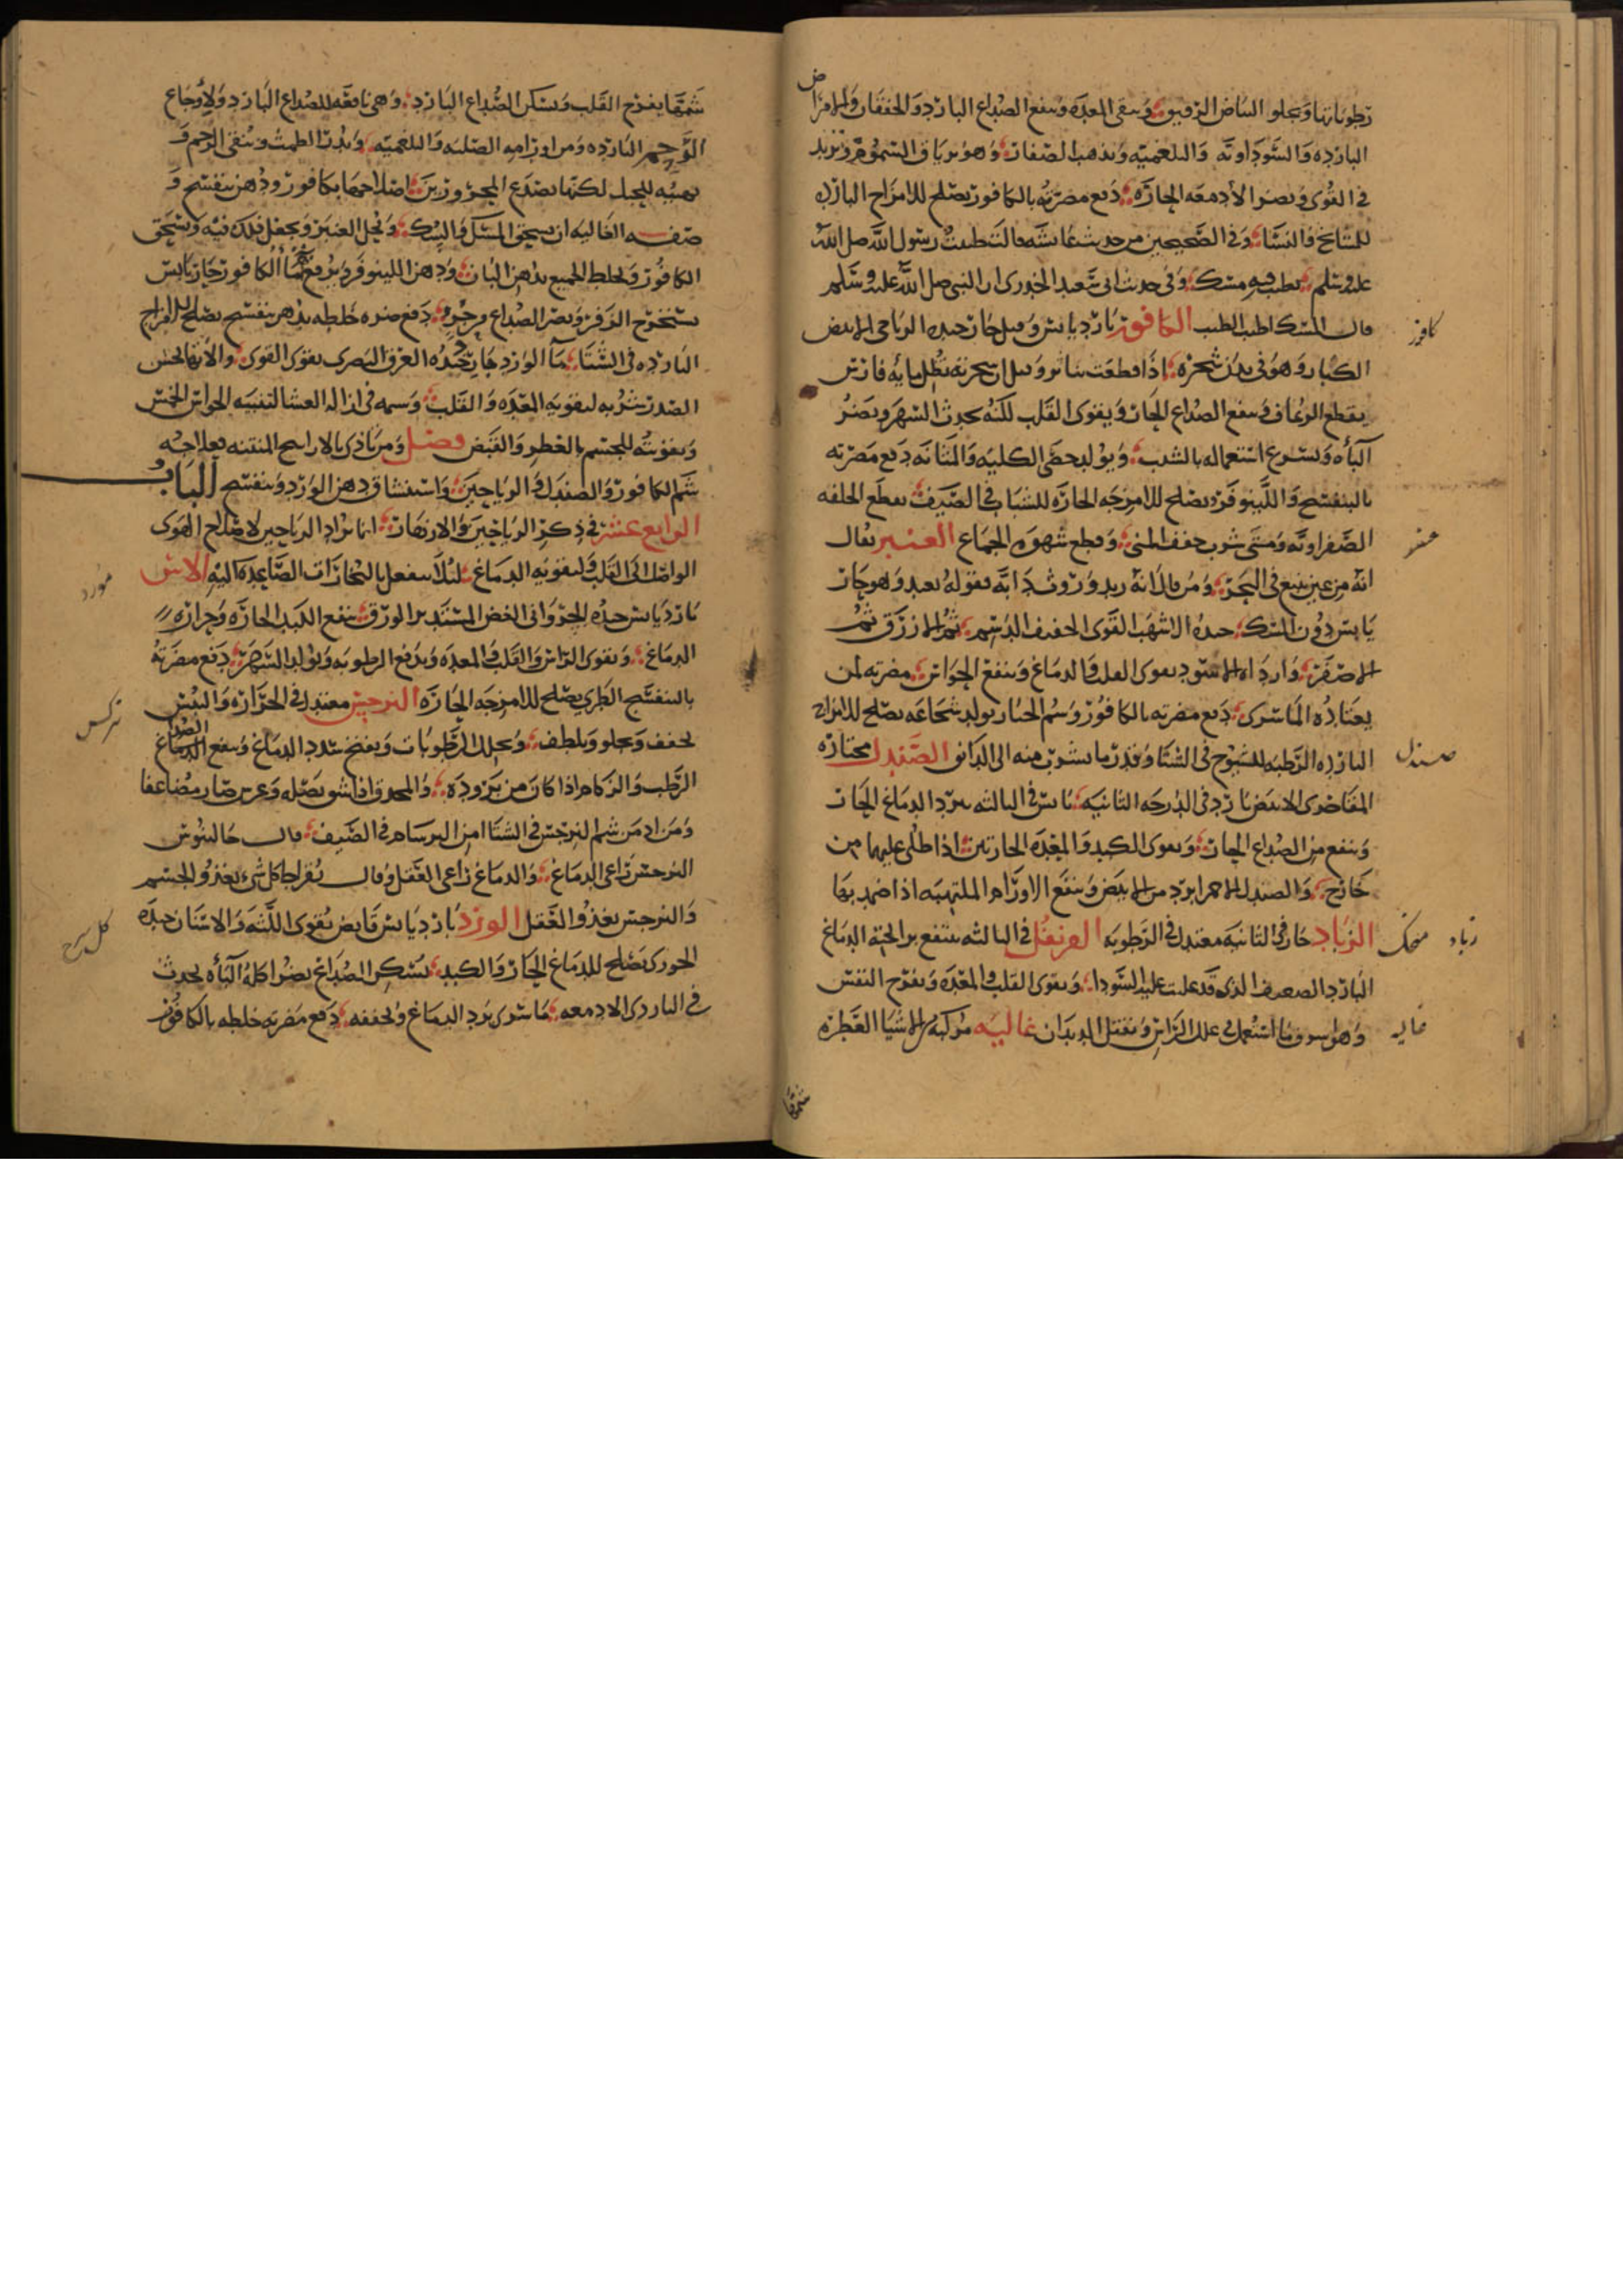 رطوباتها ويجلو البياض الرقيق وينقى المعده وينفع الصداع البارد والخفقان والامراض
البارده والسوداويه والبلغميه ويذهب الصفار وهو ترياق السموم ويزيد
فى القوى ويضر الأدمغه الحاره دفع مضرته بالكافور يصلح للامزاج البارده
للمشايخ فى الشتا وفى الصحيحين من حديث عائشه قالت طيبت رسول الله صلى الله
عليه وسلم بطيب فيه مسك وفى حديث ابى سعيد الخدرى ان النبى صلى الله عليه وسلم
قال المسك اطيب الطيب الكافور بارد يابس وقيل حار جيده الرباحى الابيض
الكبار وهو فى بدن شجره اذا قطعت
يقطع الرعاف وينفع الصداع الحار ويقوى القلب لكنه يحدث السهر ويضر
الباه ويسرع استعماله بالشيب ويولد حصى الكليه والمثانه دفع مضرته
بالبنفسج واللينوفر ويصلح للامزجه الحاره للشباب فى الصيف يقطع الخلفه
الصفراويه ومتى شرب جفف المنى وقطع شهوه الجماع العنبر يقال
انه من عين تنبع فى البحر ومن قال انه زبد وروث دابه فقوله بعيد وهو حار
يابس دون المسك جيده الاشهب القوى الخفيف الدسم ثم الازرق ثم
الاصفر واردأه الاسود يقوى القلب والدماغ وينفع الحواس مضرته لمن
يعتاده الماشرى دفع مضرته بالكافور وشم الخيار يولد شجاعه يصلح للامزاج
البارده الرطبه للشيوخ فى الشتا وقدر ما يشرب منه الى الدانق الصندل مختاره
المقاصرى الابيض بارد فى الدرجه الثانيه يابس فى الثالثه يبرد الدماغ الحار
وينفع من الصداع الحار ويقوى الكبد والمعده الحارتين اذا طلى عليهما من
خارج والصندل الاحمر ابرد من الابيض وينفع الاورام الملتهبه اذا ضمد بها
الزباد حار فى الثانيه معتدل فى الرطوبه القرنفل فى الثالثه ينتفع به الدماغ
البارد الضعيف الذى قد غلبت عليه السودا ويقوى القلب والمعده ويفرح النفس
وهو اشرف ما استعمل فى علل الراس غاليه مركبه من الاشيا العطره
كافور
عنبر
صندل
زباد
غاليه
شمها
شمها يفرح القلب ويسكن الصداع البارد وهى نافعه للصداع البارد ولاوجاع
الرحم البارده ومن اورامه الصلبه والبلغميه ويدر الطمث وينقى الرحم و
يهييه للحبل لكنها تصدع المحرورين اصلاحها بكافور ودهن بنفسج و
صفه الغاليه ان يسحق المسك والسك ويحل العنبر ويجعل ذلك فيه ويسحق
الكافور ويخلط الجميع بدهن البان ودهن اللينوفر ويرفع ماء الكافور حار يابس
يستخرج الزفر ويضر الصداع دفع ضرره خلطه بدهن بنفسج يصلح للامزاج
البارده فى الشتا ما الورد حار جيده العرق البصرى يقوى القوى والالتهاب الحسن
الصدر شربه لتقويه المعده والقلب وشمه فى ازاله الغشا لتنبيه الحواس الخمس
وتقويته للجسم بالعطر والقبض فصل ومن تأذى بالاراييح المنتنه فعلاجه
شم الكافور والصندل والرياحين واستنشاق دهن الورد وبنفسج الباب
الرابع عشر فى ذكر الرياحين والازهار انما تراد الرياحين لاصلاح الهوى
الواصل الى القلب ولتقويه الدماغ لئلا ينفعل بالبخارات الصاعده اليه الاس
بارد يابس جيده الخسروانى الغض المستدير الورق ينفع الكبد الحاره وحراره
الدماغ ويقوى الراس والقلب والمعده ويدفع الرطوبه ويولد السهر دفع مضرته
بالبنفسج الطرى يصلح للامزجه الحاره النرجس معتدل فى الحراره واليبس
يجفف ويجلو ويلطف ويحلل الرطوبات ويفتح سدد الدماغ وينفع الصداع
الرطب والزكام اذا كان من بروده والمحدق اذا شق بصله وغرس صار مضاعفا
ومن ادمن شم النرجس فى الشتا امن البرسام فى الصيف قال جالينوس
النرجس راعى الدماغ والدماغ راعى العقل وقال بقراط كل شىء يغذو الجسم
والنرجس يغذو العقل الورد بارد يابس قابض يقوى اللثه والاسنان جيده
الجورى يصلح للدماغ الحار والكبد يسكن الصداع يضر اكله الباه يحدث
فى البارد الادمغه ماشرى يرد الدماغ ويجففه دفع مضرته خلطه بالكافور
مورد
نركس
كل سرخ